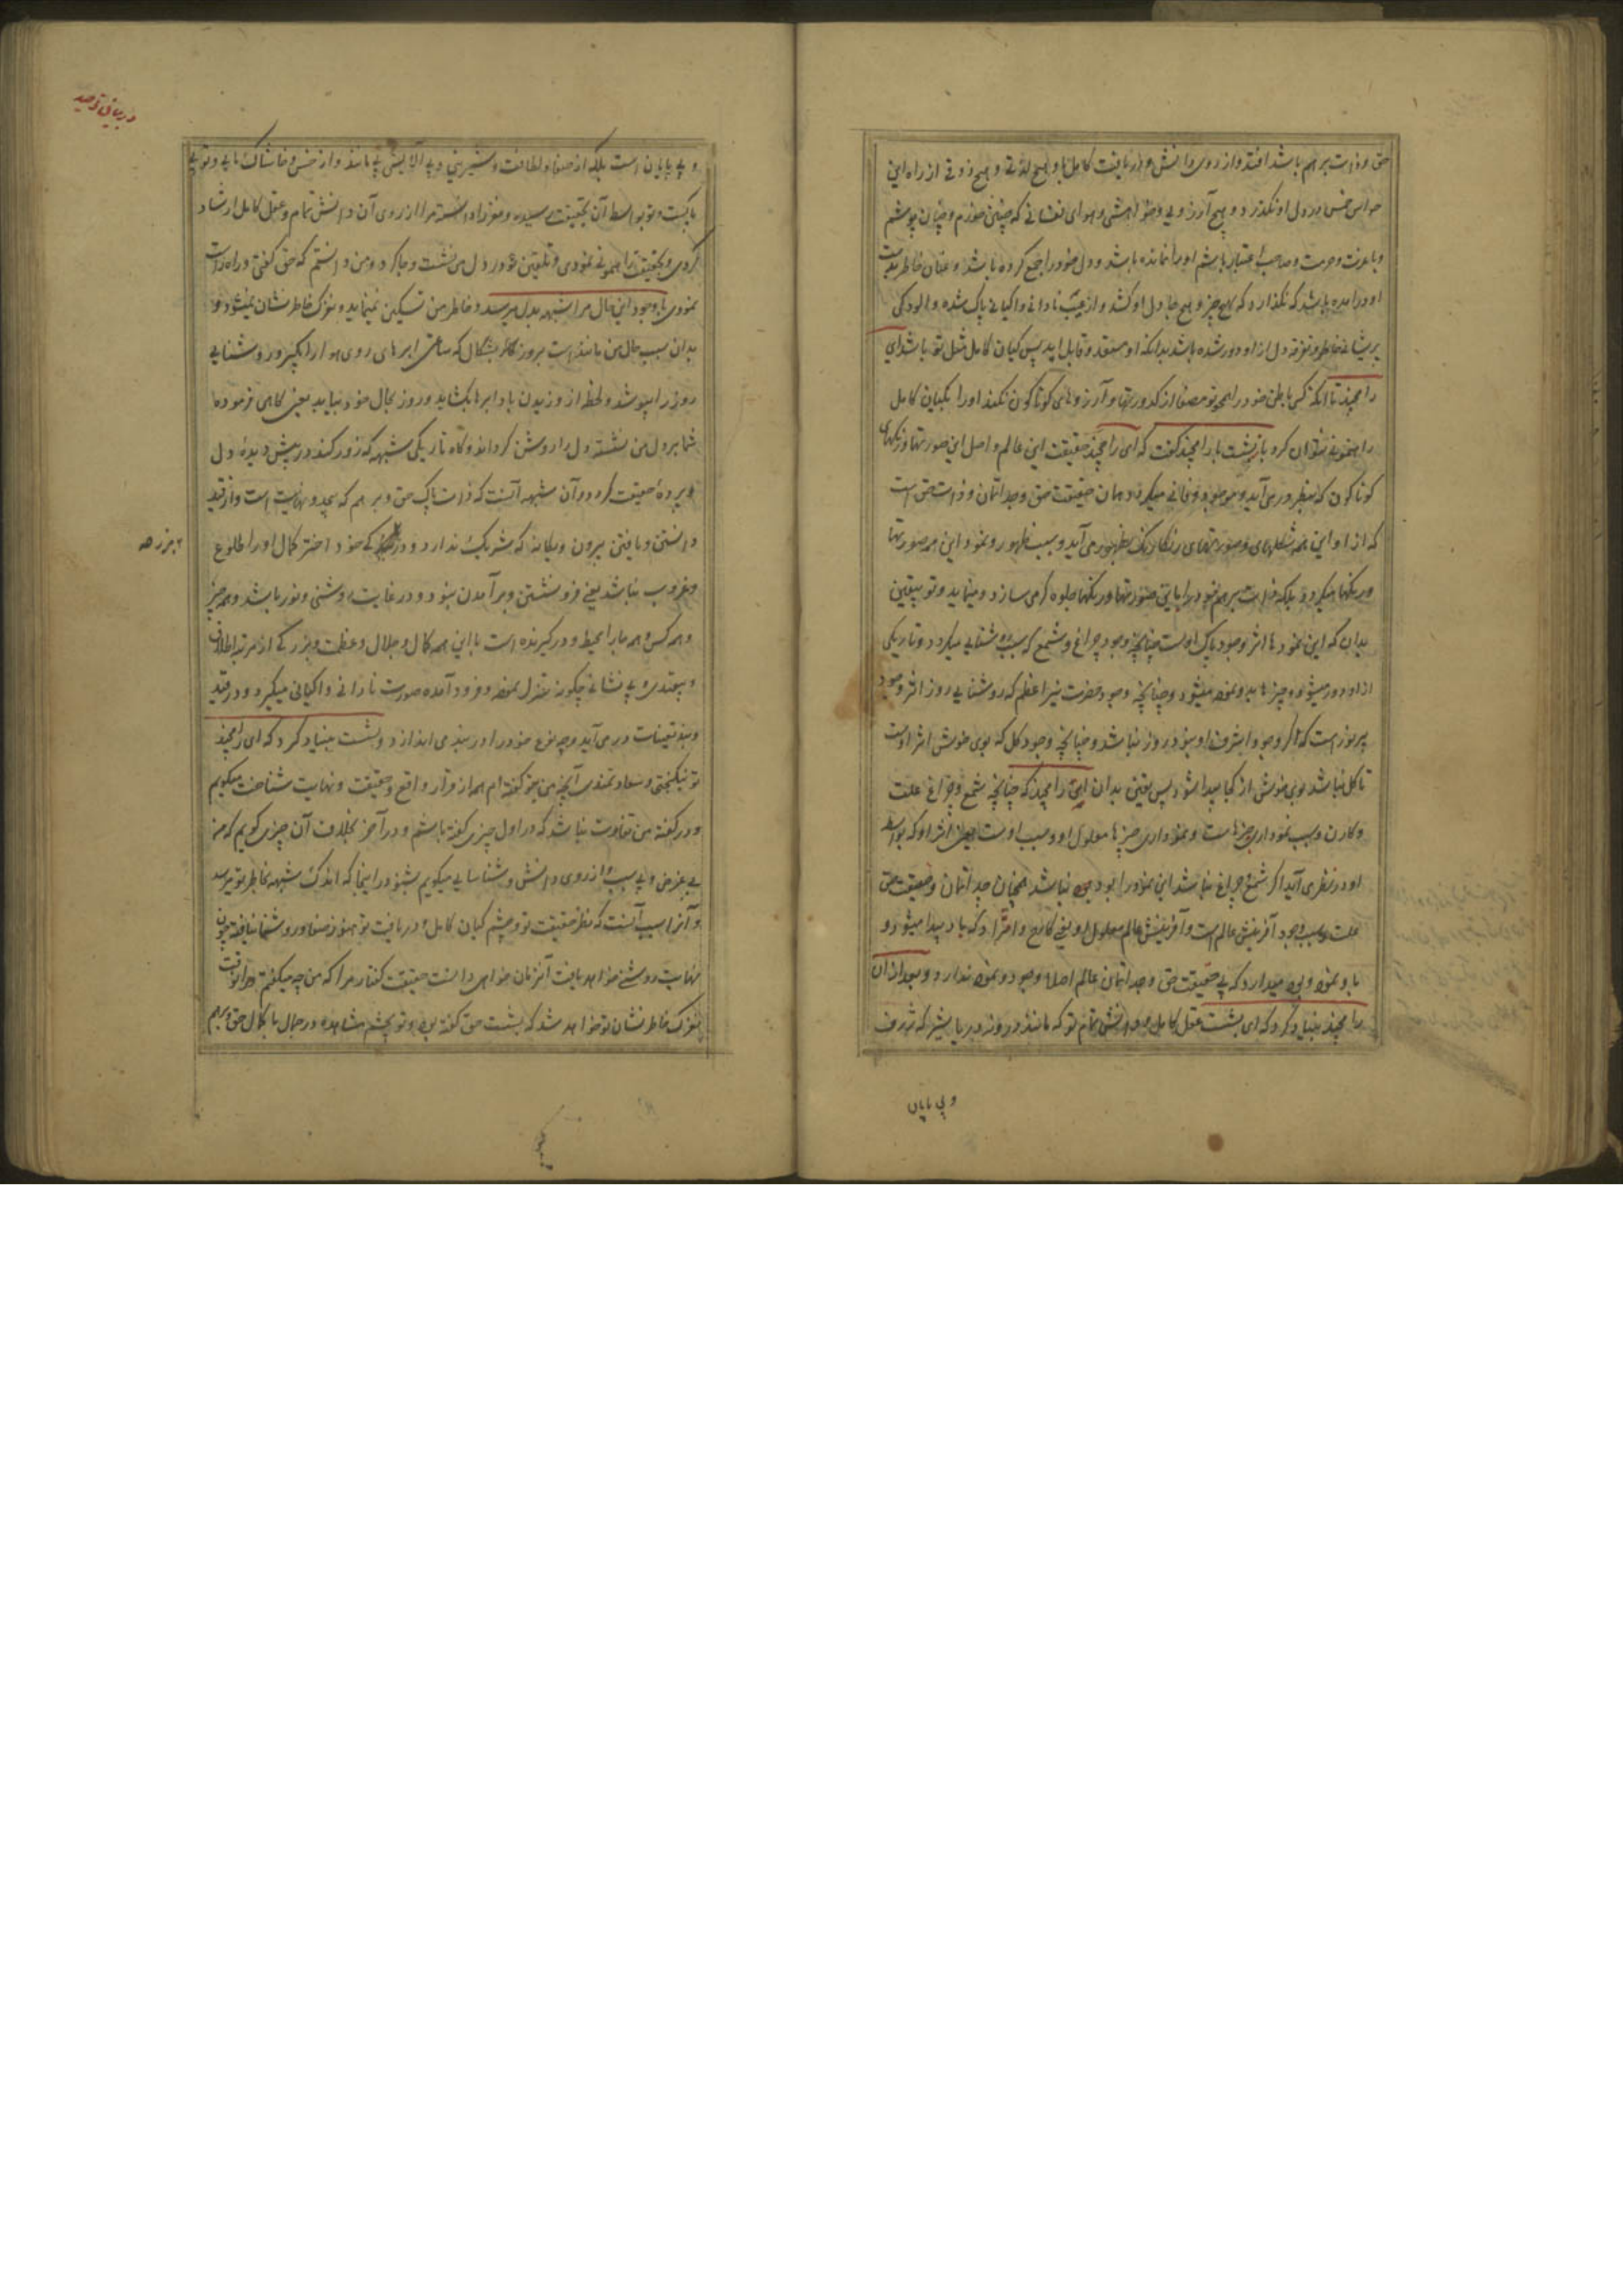 حق و ذات برهم باشد افتد و از روی دانش و دریافت کامل با و هیچ لذتی و هیچ ذوقی از راه این
حواس خمس در دل او نگذرد و هیچ آرزویی و خواهشی و هوای نفسانی که چنین خورم و چنان پوشم
و با عزت و حرمت و صاحب اعتبار باشم او را نمانده باشد و دل خود را جمع کرده باشد و عنان خاطر بدست
او در آمده باشد که نگذارد که هیچ چیز و هیچ جا دل او کشد و از عیب نادانی و اگیانی پاک شده و آلودگی
پریشانی خاطر و تفرقه دل از او دور شده باشد بدانکه او معتقد و قابل اپدیس گیان کامل مثل تو باشد ای
رامچند تا آنکه کسی باطن خود را همچو تو مصفا از کدورتها و آرزوهای گوناگون نکند او را بگیان کامل
راهنمونی نتوان کرد باز بشست با رامچند گفت که ای رامچند حقیقت این عالم و اصل این صورتها و رنگهای
گوناگون که بنظر در می آید و موجود و فانی میگردد همان حقیقت حق و چداتمان و ذات حق است
که از او این همه شکلهای و صورتهای رنگارنگ بظهور می آید و سبب ظهور و نمود این همه صورتها
و رنگها میگردد بلکه ذات برهم خود را باین صورتها و رنگها جلوه گر می سازد و مینماید و تو بیقین
بدان که این نمودها اثر وجود پاک اوست چنانچه وجود چراغ و شمع که سبب روشنایی میگردد و تاریکی
از او دور میشود و چیزها بدو نموده میشود و چنانچه وجود حضرت نیر اعظم که روشنایی روز اثر وجود
پر نور است که اگر وجود اشرف او نبود روز نباشد و چنانچه وجود گل که بوی خوش اثر اوست
تا گل نباشد بوی خوش از کجا پیدا شود پس یقین بدان ای رامچند که چنانچه شمع و چراغ علت
و کارن و سبب نموداری چیزهاست و نموداری چیزها معلول او و سبب اوست یعنی اثر او که بواسطه
او در نظر می آید اگر شمع و چراغ نباشد این نمود را بود نباشد همچنان چداتمان و حقیقت حق
علت و سبب وجود آفرینش عالم است و آفرینش عالم معلول او یعنی کارج و اثر او که باو پیدا میشود و
باو نمود و بود میدارد که بی حقیقت حق و چداتمان عالم اصلا وجود و نمود ندارد و بعد از آن
رامچند بنیاد کرد که ای بشست عقل کامل و دانش تمام تو که مانند درونه دریا شیر که ژرف
و بی پایان
در بیان توحید
و بی پایان است بلکه از صفا و لطافت و شیرینی و بی آلایش بی مانند و از خس و خاشاک مایی و تویی
پاکست و تو بواسطه آن بحقیقت رسیده و مغز او دانسته مرا از روی آن دانش تمام و عقل کامل ارشاد
کردی و بحقیقت راهنمونی نمودی و تلقین تو در دل من نشست و جا کرد و من دانستم که حق گفتی و راه راست
نمودی با وجود این حال مرا شبهه بدل میرسد و خاطر من تسکین نمینماید و بنزک خاطر نشان نمیشود و
بدان سبب حال من مانند است بروز کار بشکال که ساعتی ابرهای روی هوا را بگیرد و روشنایی
روز را بپوشد و لحظه از وزیدن باد ابرها بگشاید و روز بحال خود بیاید یعنی گاهی فرموده
شما بر دل من نشسته دل را روشن گرداند و گاه تاریکی شبهه که زور کند در پیش دیده دل
و پرده حقیقت گردد و آن شبهه آنست که ذات پاک حق و برهم که بیحد و نهایت است و از قید
دانستن و یافتن بیرون و یگانه که شریک ندارد و در که خود اختر کمال او را طلوع
۲ مرز هه
و غروب نباشد یعنی فرو نشستن و برآمدن نبود و در غایت روشنی و نور باشد و همه چیز
و همه کس و همه جا را محیط و در گیرنده است با این همه کمال و جلال و عظمت و بزرگی از مرتبه اطلاق
و بیقیدی و بی نشانی چگونه تنزل نموده و فرود آمده صورت نادانی و اگیانی میگیرد و در قید
و بند تعینات در می آید و چه نوع خود را در بند می اندازد و بشست بنیاد کرد که ای رامچند
تو نیکبختی و سعادتمندی آنچه من بتو گفته ام همه از قرار واقع و حقیقت و نهایت شناخت میگویم
و در گفته من تفاوت نباشد که در اول چیزی گفته باشم و در آخر بخلاف آن چیزی گویم که من
بی غرض و بی سبب از روی دانش و شناسایی میگویم بشنو در اینجا که اندک شبهه بخاطر تو میرسد
و آنرا سبب آنست که نظر حقیقت تو و چشم گیان کامل و دریافت تو هنوز صفا و روشنی نیافته چون
نهایت روشنی خواهد یافت آنزمان خواهی دانست حقیقت گفتار مرا که من چه میگفتم و در آنوقت
بنزک خاطر نشان تو خواهد شد که بشست حق گفته بود و تو بچشم مشاهده در جمال با کمال حق و برهم